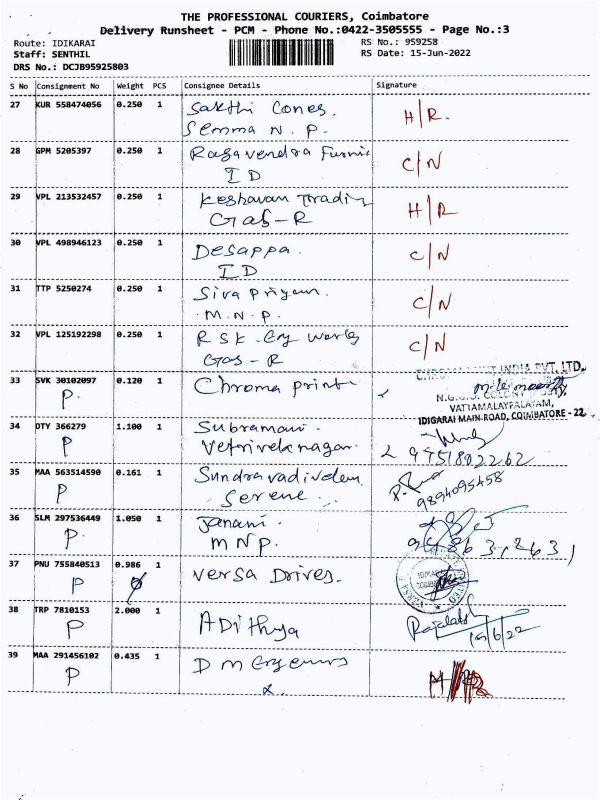 THE PROFESSIONAL COURIERS, Coimbatore
Delivery Runsheet - PCM - Phone No.:0422-3505555 - Page No.:3
Route: IDIKARAI
RS No.: 959258
Staff: SENTHIL
RS Date: 15-Jun-2022
DRS No.: DCJB95925803
S No Consignment No Weight PCS Consignee Details Signature
27 KUR 558474056 0.250 1 Sakthi Cones. H/R.
Semma N. P.
28 GPM 5205397 0.250 1 Ragavendra Furni C/N
ID
29 VPL 213532457 0.250 1 Keshavan Trading H/R
Gas-R
30 VPL 498946123 0.250 1 Desappa. C/N
ID
31 TTP 5250274 0.250 1 Siva Priyam. C/N
M.N.P.
32 VPL 125192298 0.250 1 RSK. Works C/N
Gas-R
INDIA PVT. LTD.
33 SVK 30102097 0.120 1 Chroma print
P. N.G.G.O. COLONY
VATTAMALAYPALAYAM,
IDIGARAI MAIN ROAD, COIMBATORE - 22.
34 DTY 366279 1.100 1 Subramani.
P Vetrivelnagar. 9751802262
35 MAA 563514590 0.161 1 Sundravadivelem
P Serene. 9894095458
36 SLM 297536449 1.050 1 Janani.
P. MNP.
37 PNU 755840513 0.986 1 Versa Drives.
P
38 TRP 7810153 2.000 1 Adithya
P 15/6/22
39 MAA 291456102 0.435 1 D M
P